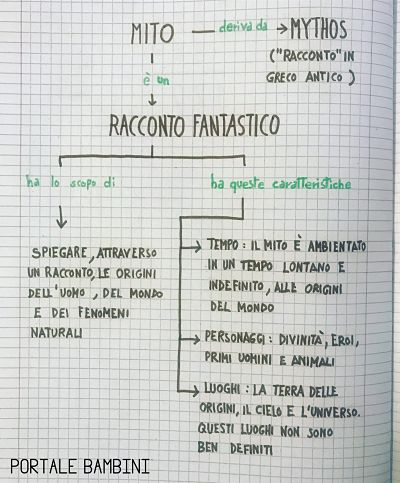 MITO — deriva da → MYTHOS
("RACCONTO" IN
GRECO ANTICO)
è un
RACCONTO FANTASTICO
ha lo scopo di
ha queste caratteristiche
SPIEGARE, ATTRAVERSO
UN RACCONTO, LE ORIGINI
DELL'UOMO, DEL MONDO
E DEI FENOMENI
NATURALI
TEMPO: IL MITO È AMBIENTATO
IN UN TEMPO LONTANO E
INDEFINITO, ALLE ORIGINI
DEL MONDO
PERSONAGGI: DIVINITÀ, EROI,
PRIMI UOMINI E ANIMALI
LUOGHI: LA TERRA DELLE
ORIGINI, IL CIELO E L'UNIVERSO.
QUESTI LUOGHI NON SONO
BEN DEFINITI
PORTALE BAMBINI